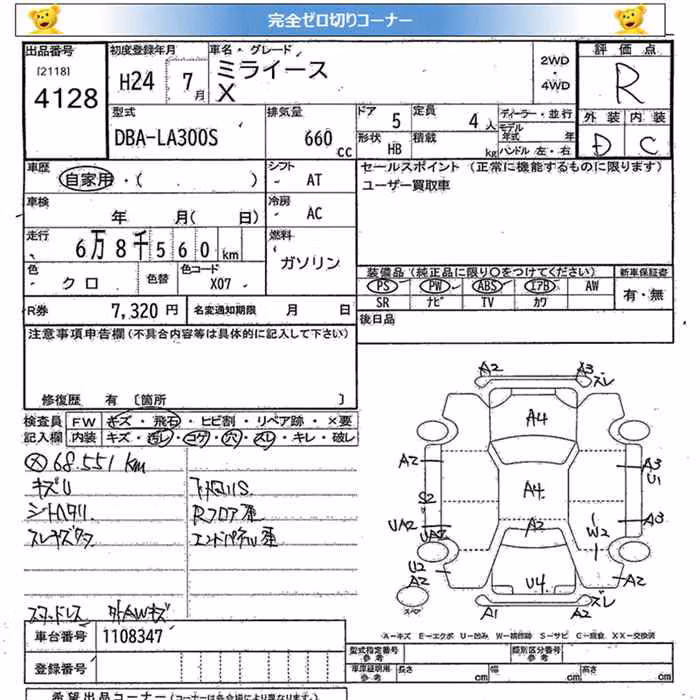 完全ゼロ切りコーナー
出品番号 初度登録年月 車名・グレード 2WD 評価点
[2118] H24 7月 ミライース ・ R
4128 X 4WD
型式 排気量 ドア 定員 ディーラー・並行 外装 内装
DBA-LA300S 660 cc 5 4人 モデル年式 年 D C
形状 HB 積載 kg ハンドル 左・右
車歴 自家用・( ) シフト - AT セールスポイント (正常に機能するものに限ります)
ユーザー買取車
車検 年 月( 日) 冷房 - AC
走行 6万8千560km 燃料 ガソリン
色 クロ 色替 色コード X07 装備品 (純正品に限り○をつけてください) 新車保証書
PS PW ABS エアB AW 有・無
SR ナビ TV カワ
R券 7,320円 名変通知期限 月 日 後日品
注意事項申告欄(不具合内容等は具体的に記入して下さい)
修復歴 有 [箇所 ]
検査員 FW キズ・飛石・ヒビ割・リペア跡・×要
記入欄 内装 キズ・汚レ・コゲ・穴・スレ・キレ・破レ
68.551km
A2 A3 スレ
A4
A2 A3 U1
S2 A4
UA2 A3
UA2 A2 W2
U2 A2 U4 A2
スペア A1 A2 スレ
スタッドレス 外AWキズ
A-キズ E-エクボ U-凹み W-補修跡 S-サビ C-腐食 XX-交換済
車台番号 1108347 型式指定番号 参考 類別区分番号 参考
登録番号 車庫証明用 参考 長さ cm 幅 cm 高さ cm
希望出品コーナー (コーナーは各会場により異なります)